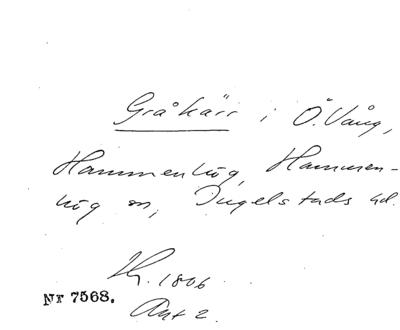 Gråkärr i Ö. Vång,
Hammenhög, Hammen-
hög sn, Ingelstads hd.
1806
Nr 7568.
Akt 2